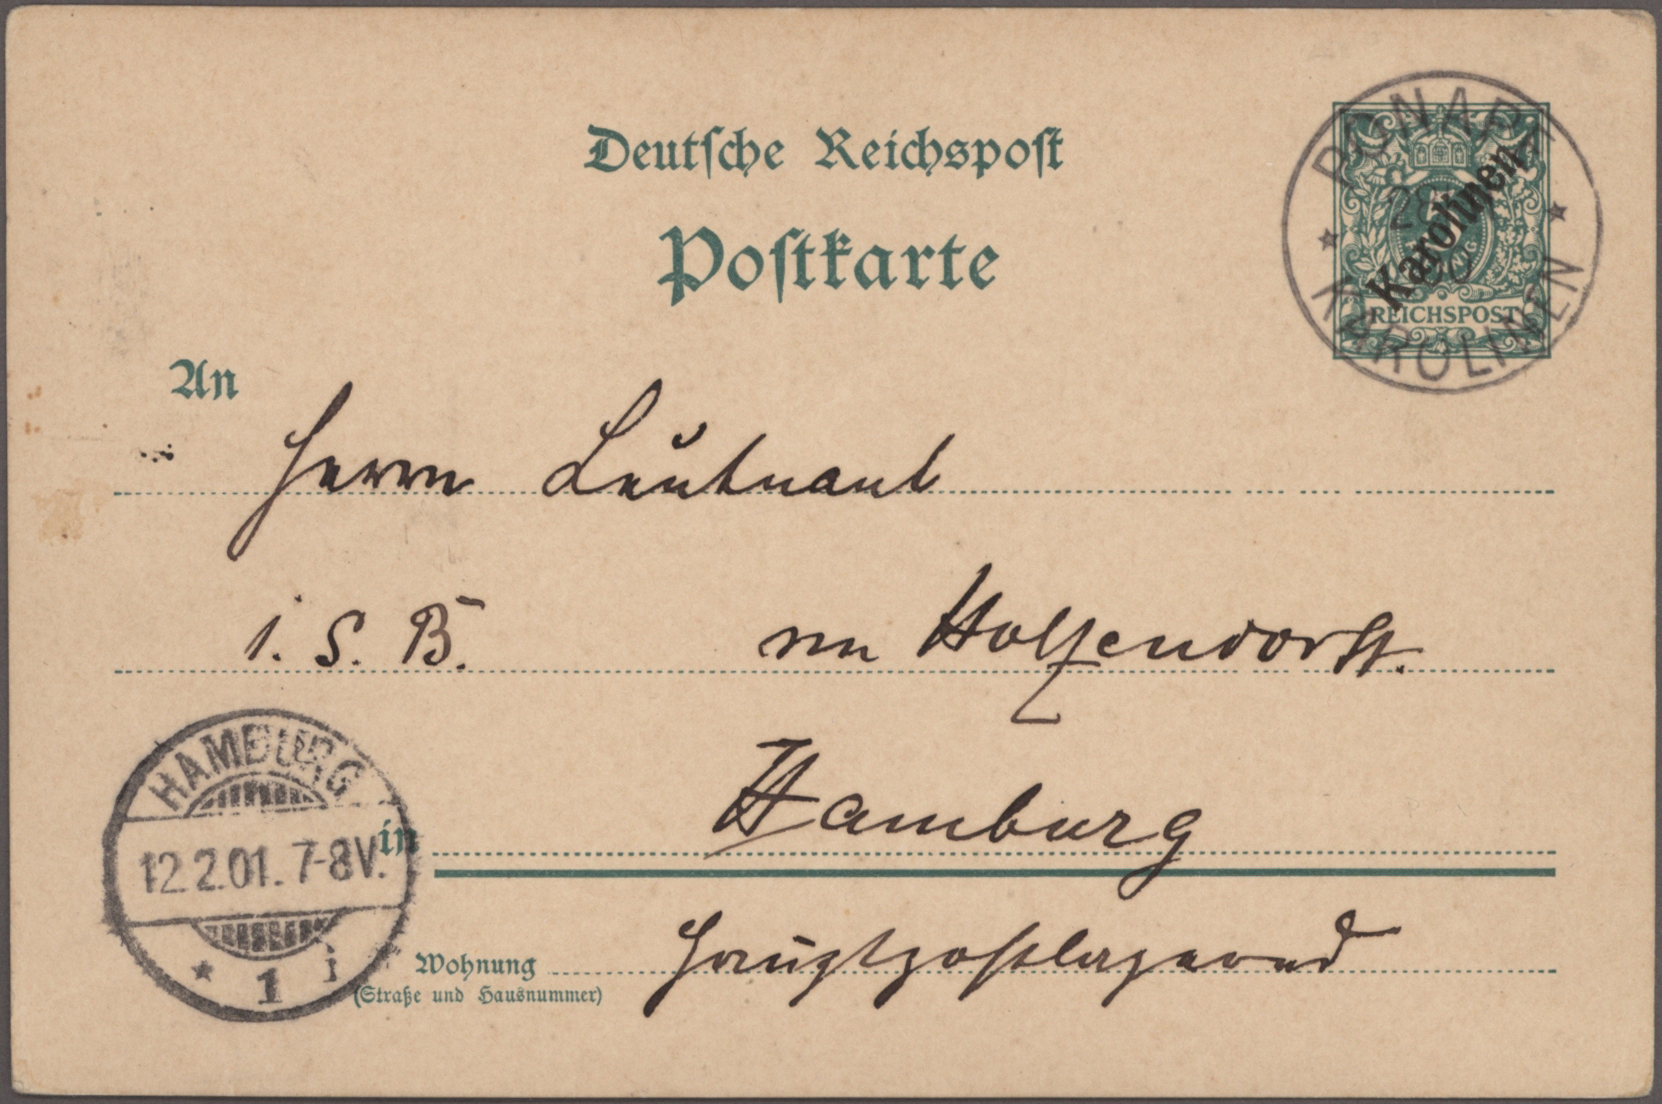 Deutsche Reichspost
Postkarte
PONAPE
KAROLINEN
Karolinen
REICHSPOST
An
Herrn Leutnant
i. S. B. von Holtzendorff.
HAMBURG
12.2.01. 7-8V.
1 i
in Hamburg
Wohnung Hauptpostlagernd
(Straße und Hausnummer)